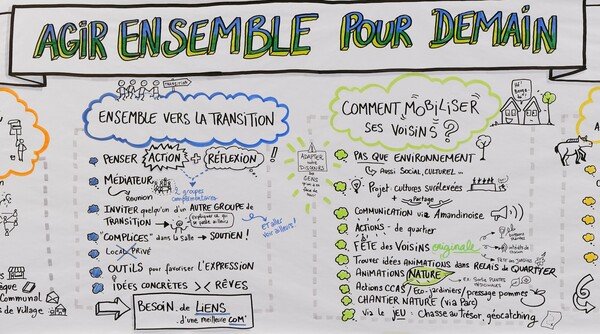 AGIR ENSEMBLE POUR DEMAIN
TRANSITION
ENSEMBLE VERS LA TRANSITION
PENSER ACTION + RÉFLEXION !
MÉDIATEUR
Réunion
2 groupes
complémentaires
INVITER quelqu'un d'un AUTRE GROUPE de
TRANSITION → expliquer ce qui
se passe ailleurs
et aller
voir ailleurs!
"COMPLICES" dans la Salle → SOUTIEN !
LOCAL PRIVÉ
OUTILS pour favoriser L'EXPRESSION
IDÉES CONCRÈTES RÊVES
BESOIN de LIENS
d'une meilleure COM'
ADAPTER
votre
DISCOURS
aux
GENS
COMMENT MOBILISER
SES VOISINS ?
PAS QUE ENVIRONNEMENT
↳ AUSSI SOCIAL, CULTUREL ...
Projet Cultures surélevées
↳ Partage
COMMUNICATION via Amandinoise
ACTIONS - de quartier
FÊTE des VOISINS originale
Trouver idées ANIMATIONS dans RELAIS de QUARTIER
ANIMATIONS NATURE
Actions CCAS / Eco-jardiniers / pressage pommes
CHANTIER NATURE (via Parc)
via le JEU : Chasse au Trésor, géocatching
Communal
de Village